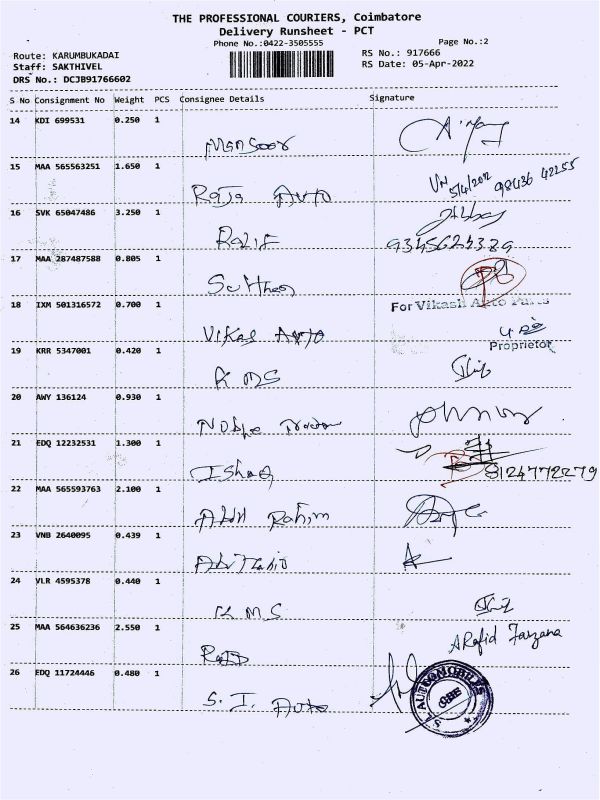 THE PROFESSIONAL COURIERS, Coimbatore
Delivery Runsheet - PCT
Phone No.:0422-3505555
Page No.:2
Route: KARUMBUKADAI
RS No.: 917666
Staff: SAKTHIVEL
RS Date: 05-Apr-2022
DRS No.: DCJB91766602
S No Consignment No Weight PCS Consignee Details Signature
14 KDI 699531 0.250 1
Mansoor
15 MAA 565563251 1.650 1
Raja Auto
98436 42255
16 SVK 65047486 3.250 1
Rafif
9345624389
17 MAA 287487588 0.805 1
18 IXM 501316572 0.700 1
For Vikash Auto Parts
Vikas Auto
Proprietor
19 KRR 5347001 0.420 1
K M S
20 AWY 136124 0.930 1
Noble
21 EDQ 12232531 1.300 1
Ishaq
8124772279
22 MAA 565593763 2.100 1
Abdul Rahim
23 VNB 2640095 0.439 1
24 VLR 4595378 0.440 1
K M S
25 MAA 564636236 2.550 1
A Rafid Farzana
26 EDQ 11724446 0.480 1
S. I. Auto
S.I. AUTOMOBILES
CBE